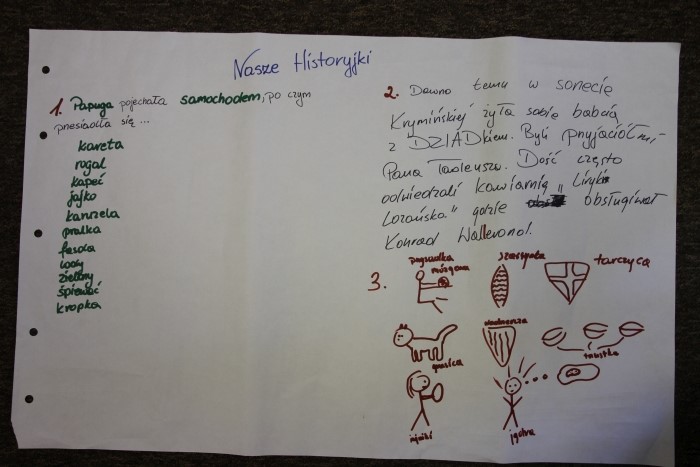 Nasze Historyjki
1. Papuga pojechała samochodem, po czym
przesiadła się ...
kareta
rogal
kapeć
jajko
kanzela
pralka
fasola
lody
zielony
śpiewać
kropka
2. Dawno temu w sonecie
Krymińskiej żyła sobie babcia
z DZIADkiem. Byli przyjaciółmi
Pana Tadeusza. Dość często
odwiedzali kawiarnię "Liryki
Lozańska" gdzie obsługiwał
Konrad Wallenrod.
3. przysadka
mózgowa
szyszynka
tarczyca
grasica
nadnercza
trzustka
jajniki
jądra